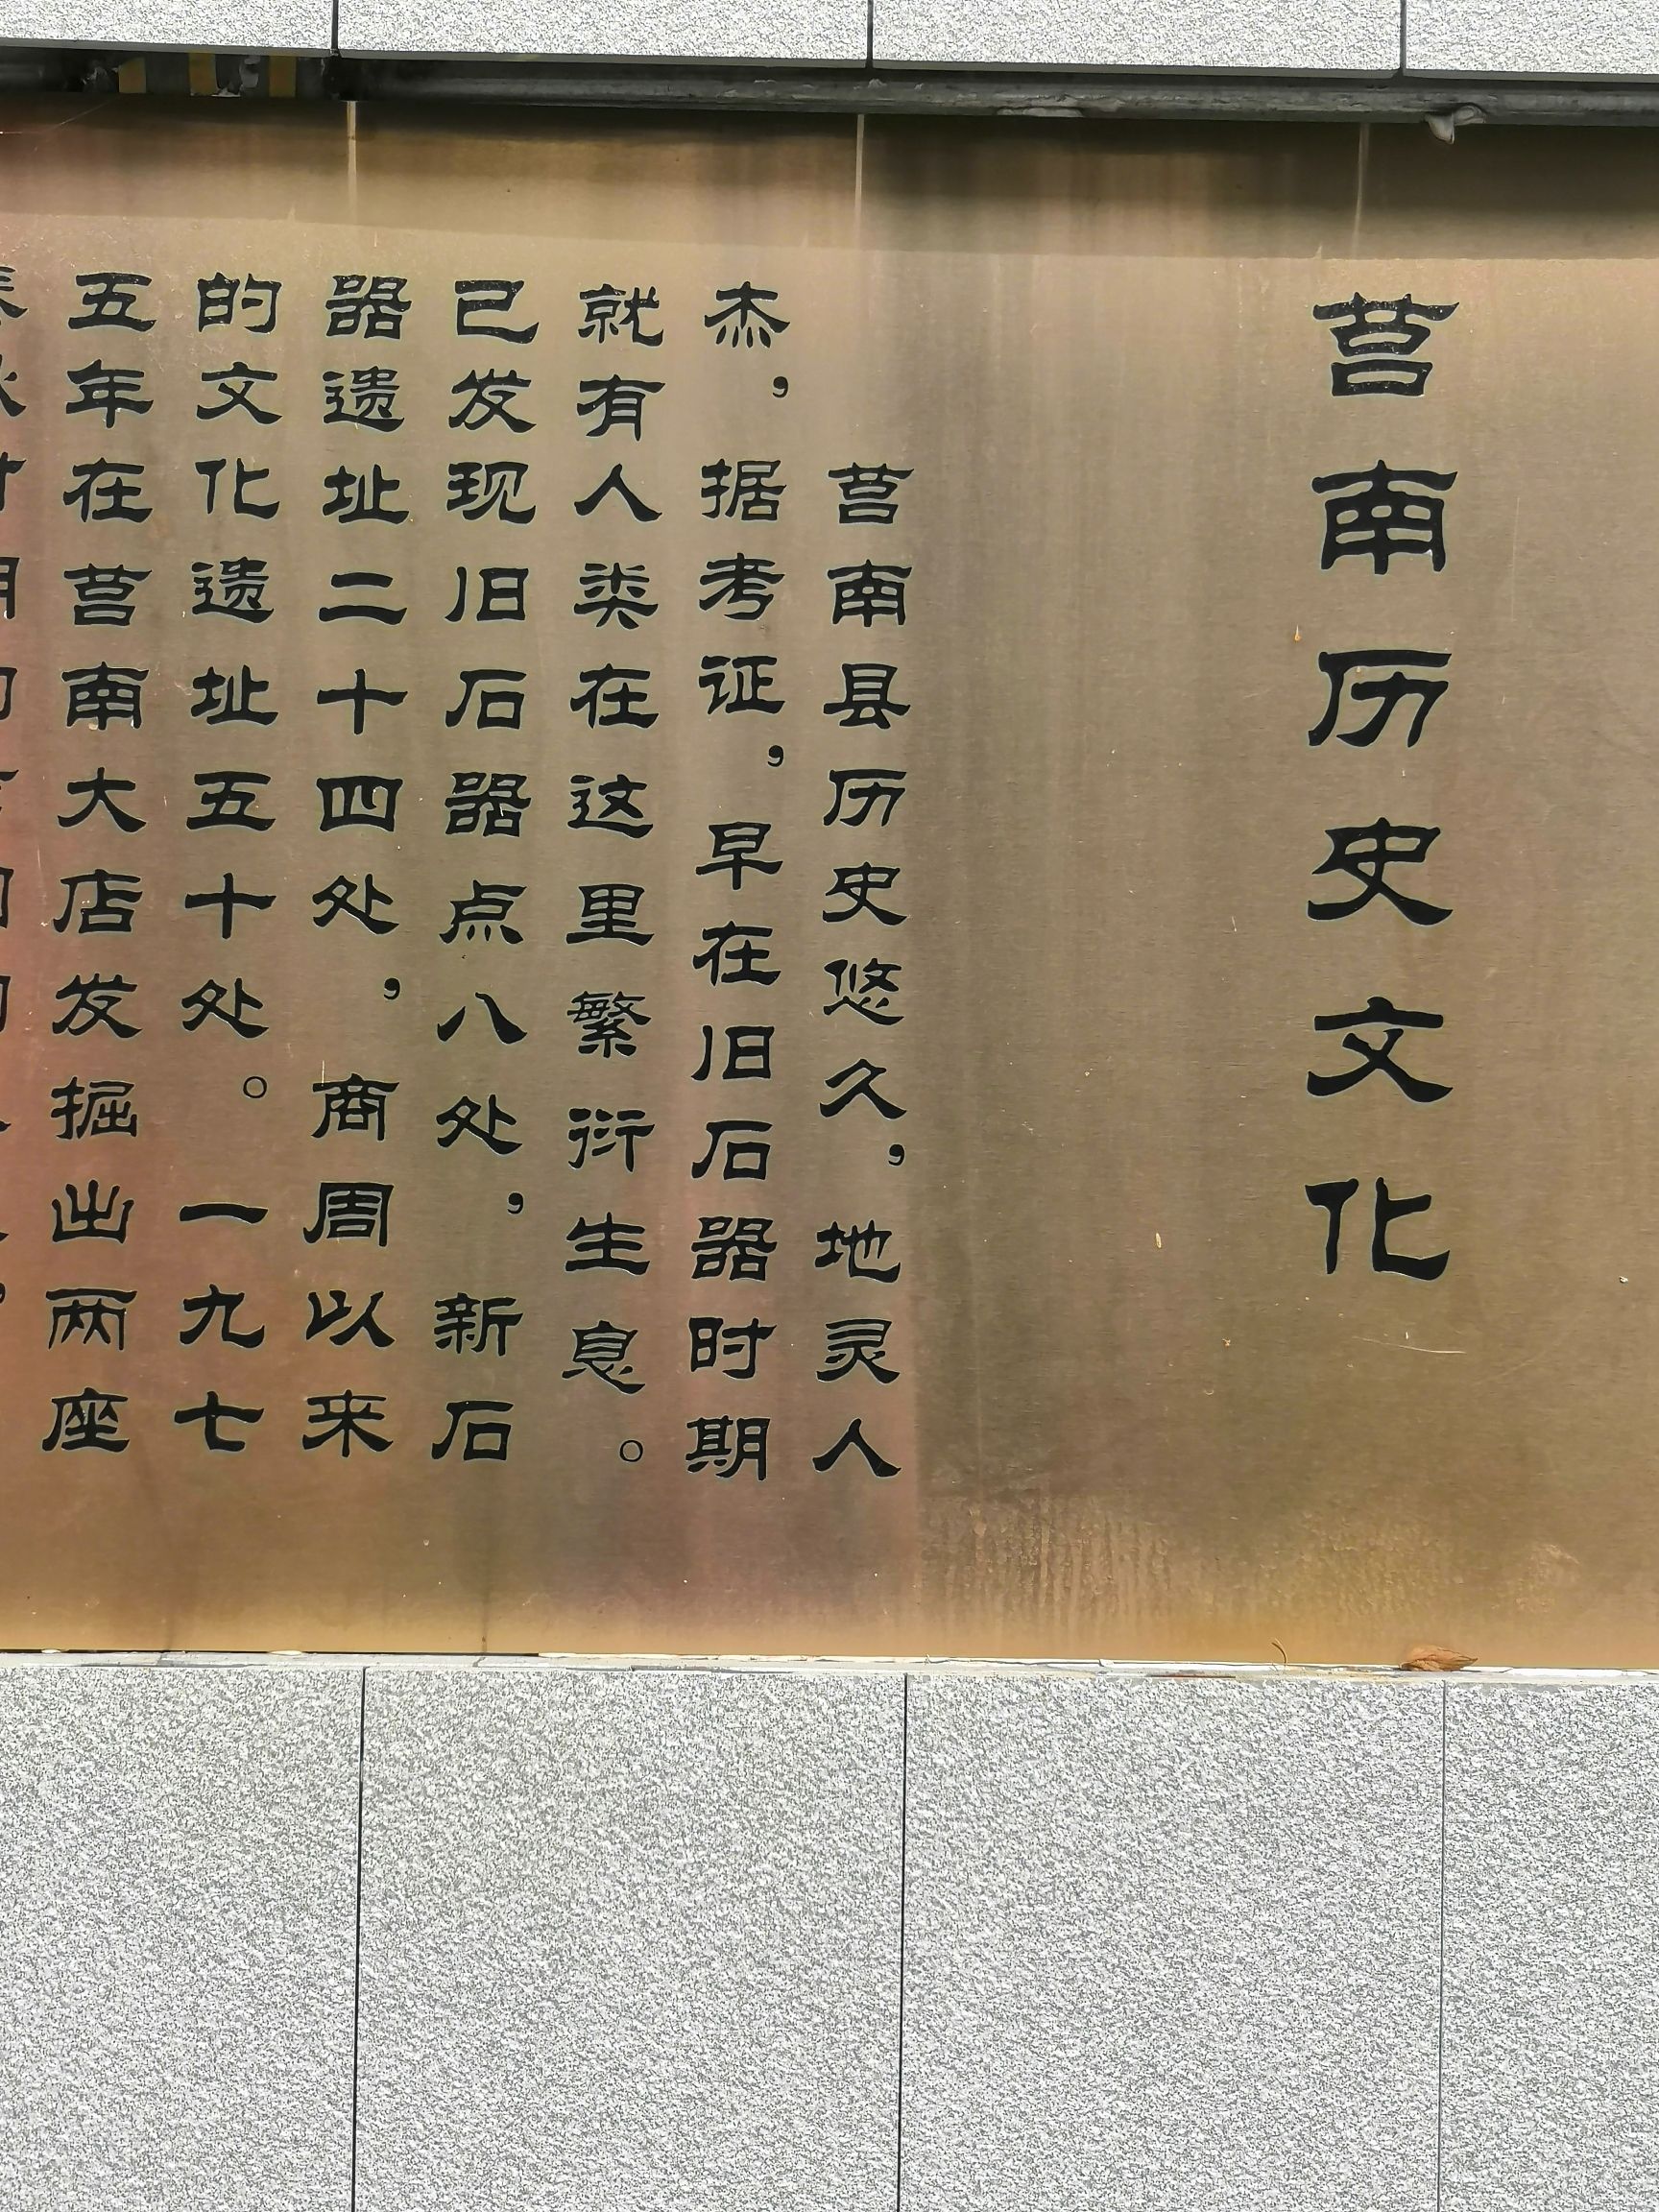 莒南历史文化
莒南县历史悠久，地灵人
杰，据考证，早在旧石器时期
就有人类在这里繁衍生息。
已发现旧石器点八处，新石
器遗址二十四处，商周以来
的文化遗址五十处。一九七
五年在莒南大店发掘出两座